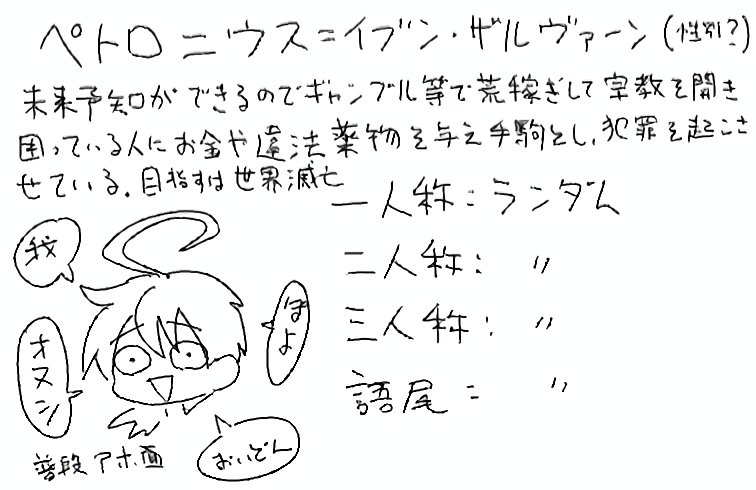 ペトロニウス=イブン・ザルヴァーン(性別?)
未来予知ができるのでギャンブル等で荒稼ぎして宗教を開き
困っている人にお金や違法薬物を与え手駒とし、犯罪を起こさ
せている。目指すは世界滅亡
一人称:ランダム
二人称: 〃
三人称: 〃
語尾: 〃
我
ぽよ
オヌシ
おいどん
普段アホ面